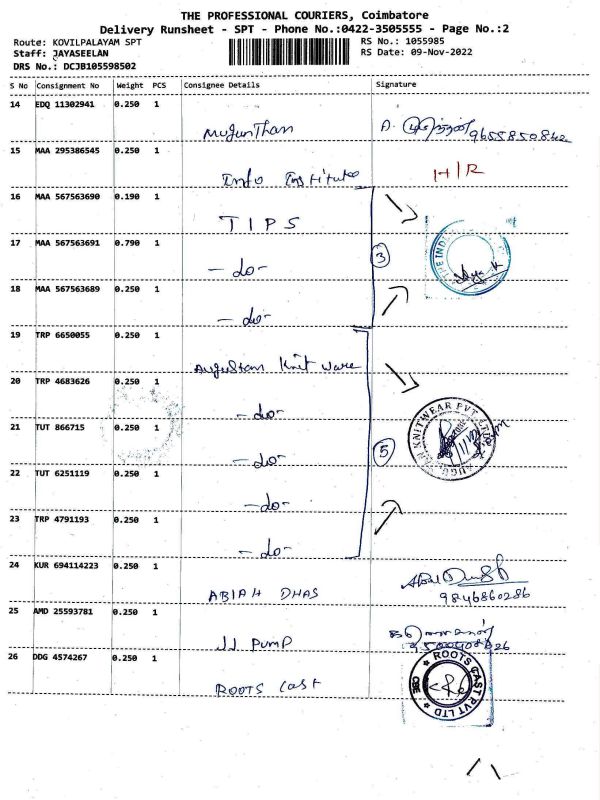 THE PROFESSIONAL COURIERS, Coimbatore
Delivery Runsheet - SPT - Phone No.:0422-3505555 - Page No.:2
Route: KOVILPALAYAM SPT
RS No.: 1055985
Staff: JAYASEELAN
RS Date: 09-Nov-2022
DRS No.: DCJB105598502
S No Consignment No Weight PCS Consignee Details Signature
14 EDQ 11302941 0.250 1
Mugunthan
9655850842
15 MAA 295386545 0.250 1
Info Institute H/R
16 MAA 567563690 0.190 1
TIPS
17 MAA 567563691 0.790 1
-do- 3
18 MAA 567563689 0.250 1
-do-
19 TRP 6650055 0.250 1
Augustan Knit Ware
20 TRP 4683626 0.250 1
-do-
21 TUT 866715 0.250 1
-do- 5
KNITWEAR PVT LTD
22 TUT 6251119 0.250 1
-do-
23 TRP 4791193 0.250 1
-do-
24 KUR 694114223 0.250 1
ABIAH DHAS
9846860286
25 AMD 25593781 0.250 1
JJ PUMP
26 DDG 4574267 0.250 1
ROOTS Cast
ROOTS CAST PVT LTD
CBE